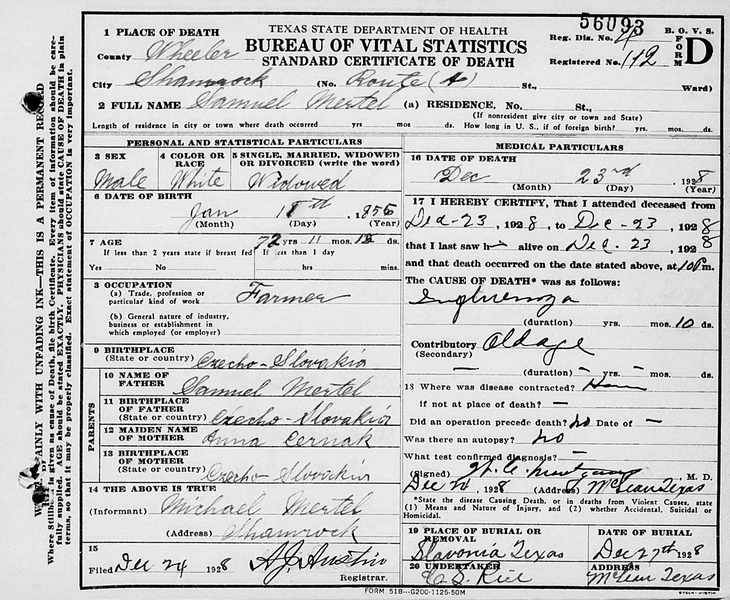 56093
TEXAS STATE DEPARTMENT OF HEALTH
BUREAU OF VITAL STATISTICS
STANDARD CERTIFICATE OF DEATH
Reg. Dis. No. 4
Registered No. 112
B. O. V. S.
FORM D
1 PLACE OF DEATH
County Wheeler
City Shamrock (No. Route (4) St., Ward)
2 FULL NAME Samuel Mertel (a) RESIDENCE. No. St.,
(If nonresident give city or town and State)
Length of residence in city or town where death occurred yrs. mos. ds. How long in U. S., if of foreign birth? yrs. mos. ds.
PERSONAL AND STATISTICAL PARTICULARS
3 SEX
Male
4 COLOR OR RACE
White
5 SINGLE, MARRIED, WIDOWED OR DIVORCED (write the word)
Widowed
6 DATE OF BIRTH
Jan 18th
(Month) (Day) (Year)
7 AGE 72 yrs 11 mos ds.
If less than 2 years state if breast fed If less than 1 day
Yes No hrs. mins.
8 OCCUPATION
(a) Trade, profession or particular kind of work Farmer
(b) General nature of industry, business or establishment in which employed (or employer)
9 BIRTHPLACE
(State or country) Czecho-Slovakia
PARENTS
10 NAME OF FATHER Samuel Mertel
11 BIRTHPLACE OF FATHER
(State or country) Czecho-Slovakia
12 MAIDEN NAME OF MOTHER Anna Cernak
13 BIRTHPLACE OF MOTHER
(State or country) Czecho Slovakia
14 THE ABOVE IS TRUE
(Informant) Michael Mertel
(Address) Shamrock
15
Filed Dec 24 1928 A.J. Austin
Registrar.
MEDICAL PARTICULARS
16 DATE OF DEATH
Dec 23rd 1928
(Month) (Day) (Year)
17 I HEREBY CERTIFY, That I attended deceased from
Dec-23, 1928, to Dec-23, 1928
that I last saw h alive on Dec. 23, 1928
and that death occurred on the date stated above, at 10 P m.
The CAUSE OF DEATH* was as follows:
Influenza
(duration) yrs. mos. 10 ds.
Contributory Old age
(Secondary)
— (duration) — yrs. — mos. — ds.
18 Where was disease contracted?
if not at place of death? —
Did an operation precede death? no Date of —
Was there an autopsy? no
What test confirmed diagnosis? —
(Signed) M. D.
1928 (Address) McLean Texas
*State the disease Causing Death, or in deaths from Violent Causes, state (1) Means and Nature of Injury, and (2) whether Accidental, Suicidal or Homicidal.
19 PLACE OF BURIAL OR REMOVAL
Slavonia Texas
DATE OF BURIAL
Dec 27th 1928
20 UNDERTAKER
C. S. Rice
ADDRESS
McLean Texas
FORM 518---G200-1125-50M
PLAINLY WITH UNFADING INK—THIS IS A PERMANENT RECORD